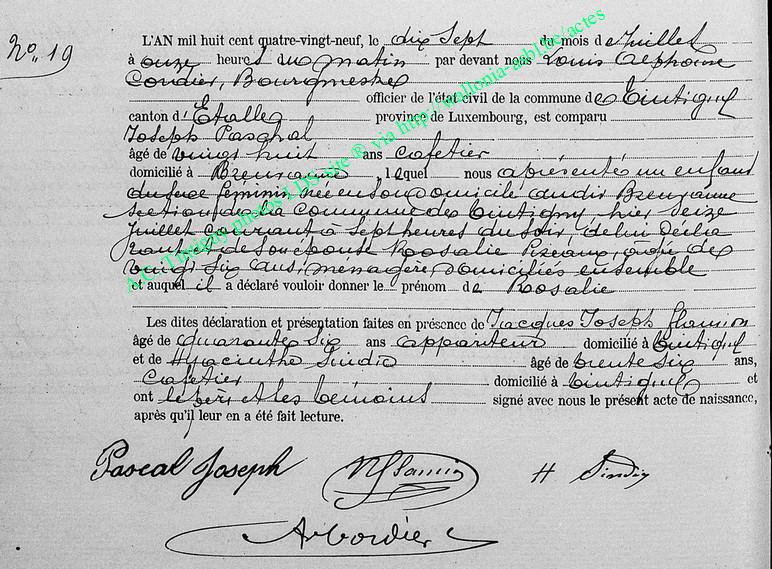 No. 19
L'AN mil huit cent quatre-vingt-neuf, le dix Sept du mois de Juillet
à onze heures du matin par devant nous Louis Alphonse
Cordier, Bourgmestre
officier de l'état civil de la commune de Tintigny
canton d'Etalle province de Luxembourg, est comparu
Joseph Paschal
âgé de vingt huit ans cafetier
domicilié à Breuvanne, lequel nous a présenté un enfant
du sexe féminin née en son domicile audit Breuvanne
section de la commune de Tintigny hier seize
Juillet courant à Sept heures du Soir, de lui décla
rant et de Son épouse Rosalie âgée de
vingt Six ans, ménagère, domiciliés ensemble
et auquel il a déclaré vouloir donner le prénom de Rosalie
Les dites déclaration et présentation faites en présence de Jacques Joseph
âgé de quarante Six ans appariteur domicilié à Tintigny
et de Hyacinthe Sindic âgé de trente Six ans,
Cafetier domicilié à Tintigny et
ont le père et les témoins signé avec nous le présent acte de naissance,
après qu'il leur en a été fait lecture.
Pascal Joseph H Sindic
Cordier
A.C. Tintigny photos LDS site ® via http://wallonia-asbl.be/actes